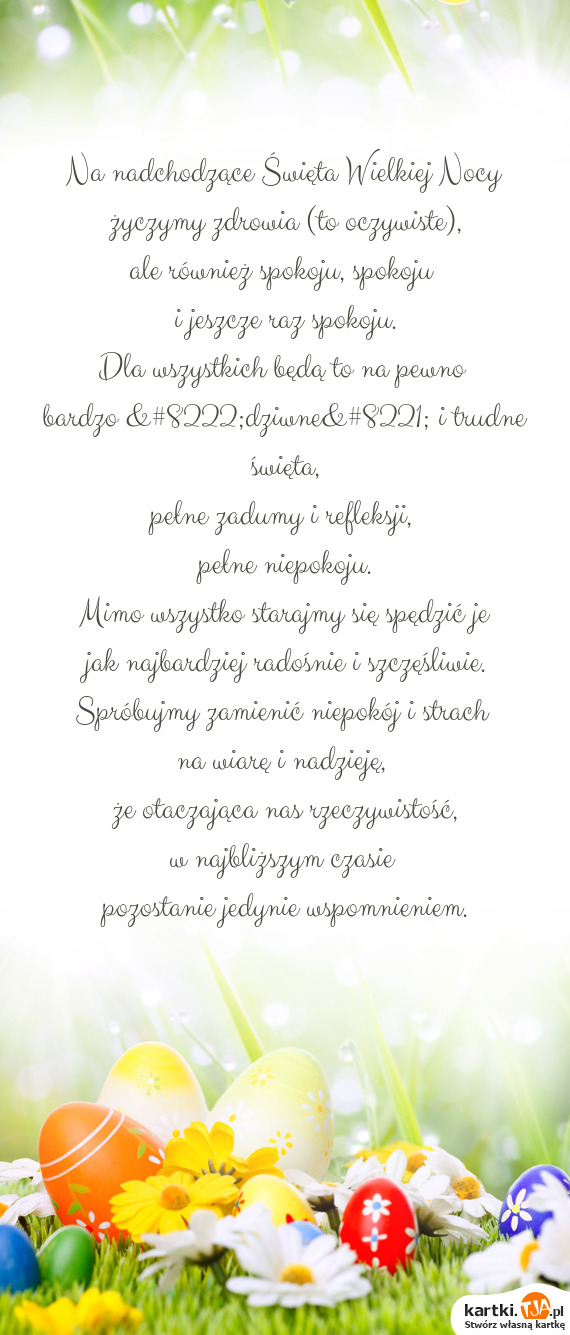 Na nadchodzące Święta Wielkiej Nocy
życzymy zdrowia (to oczywiste),
ale również spokoju, spokoju
i jeszcze raz spokoju.
Dla wszystkich będą to na pewno
bardzo &#8222;dziwne&#8221; i trudne
święta,
pełne zadumy i refleksji,
pełne niepokoju.
Mimo wszystko starajmy się spędzić je
jak najbardziej radośnie i szczęśliwie.
Spróbujmy zamienić niepokój i strach
na wiarę i nadzieję,
że otaczająca nas rzeczywistość,
w najbliższym czasie
pozostanie jedynie wspomnieniem.
kartki.TJA.pl
Stwórz własną kartkę